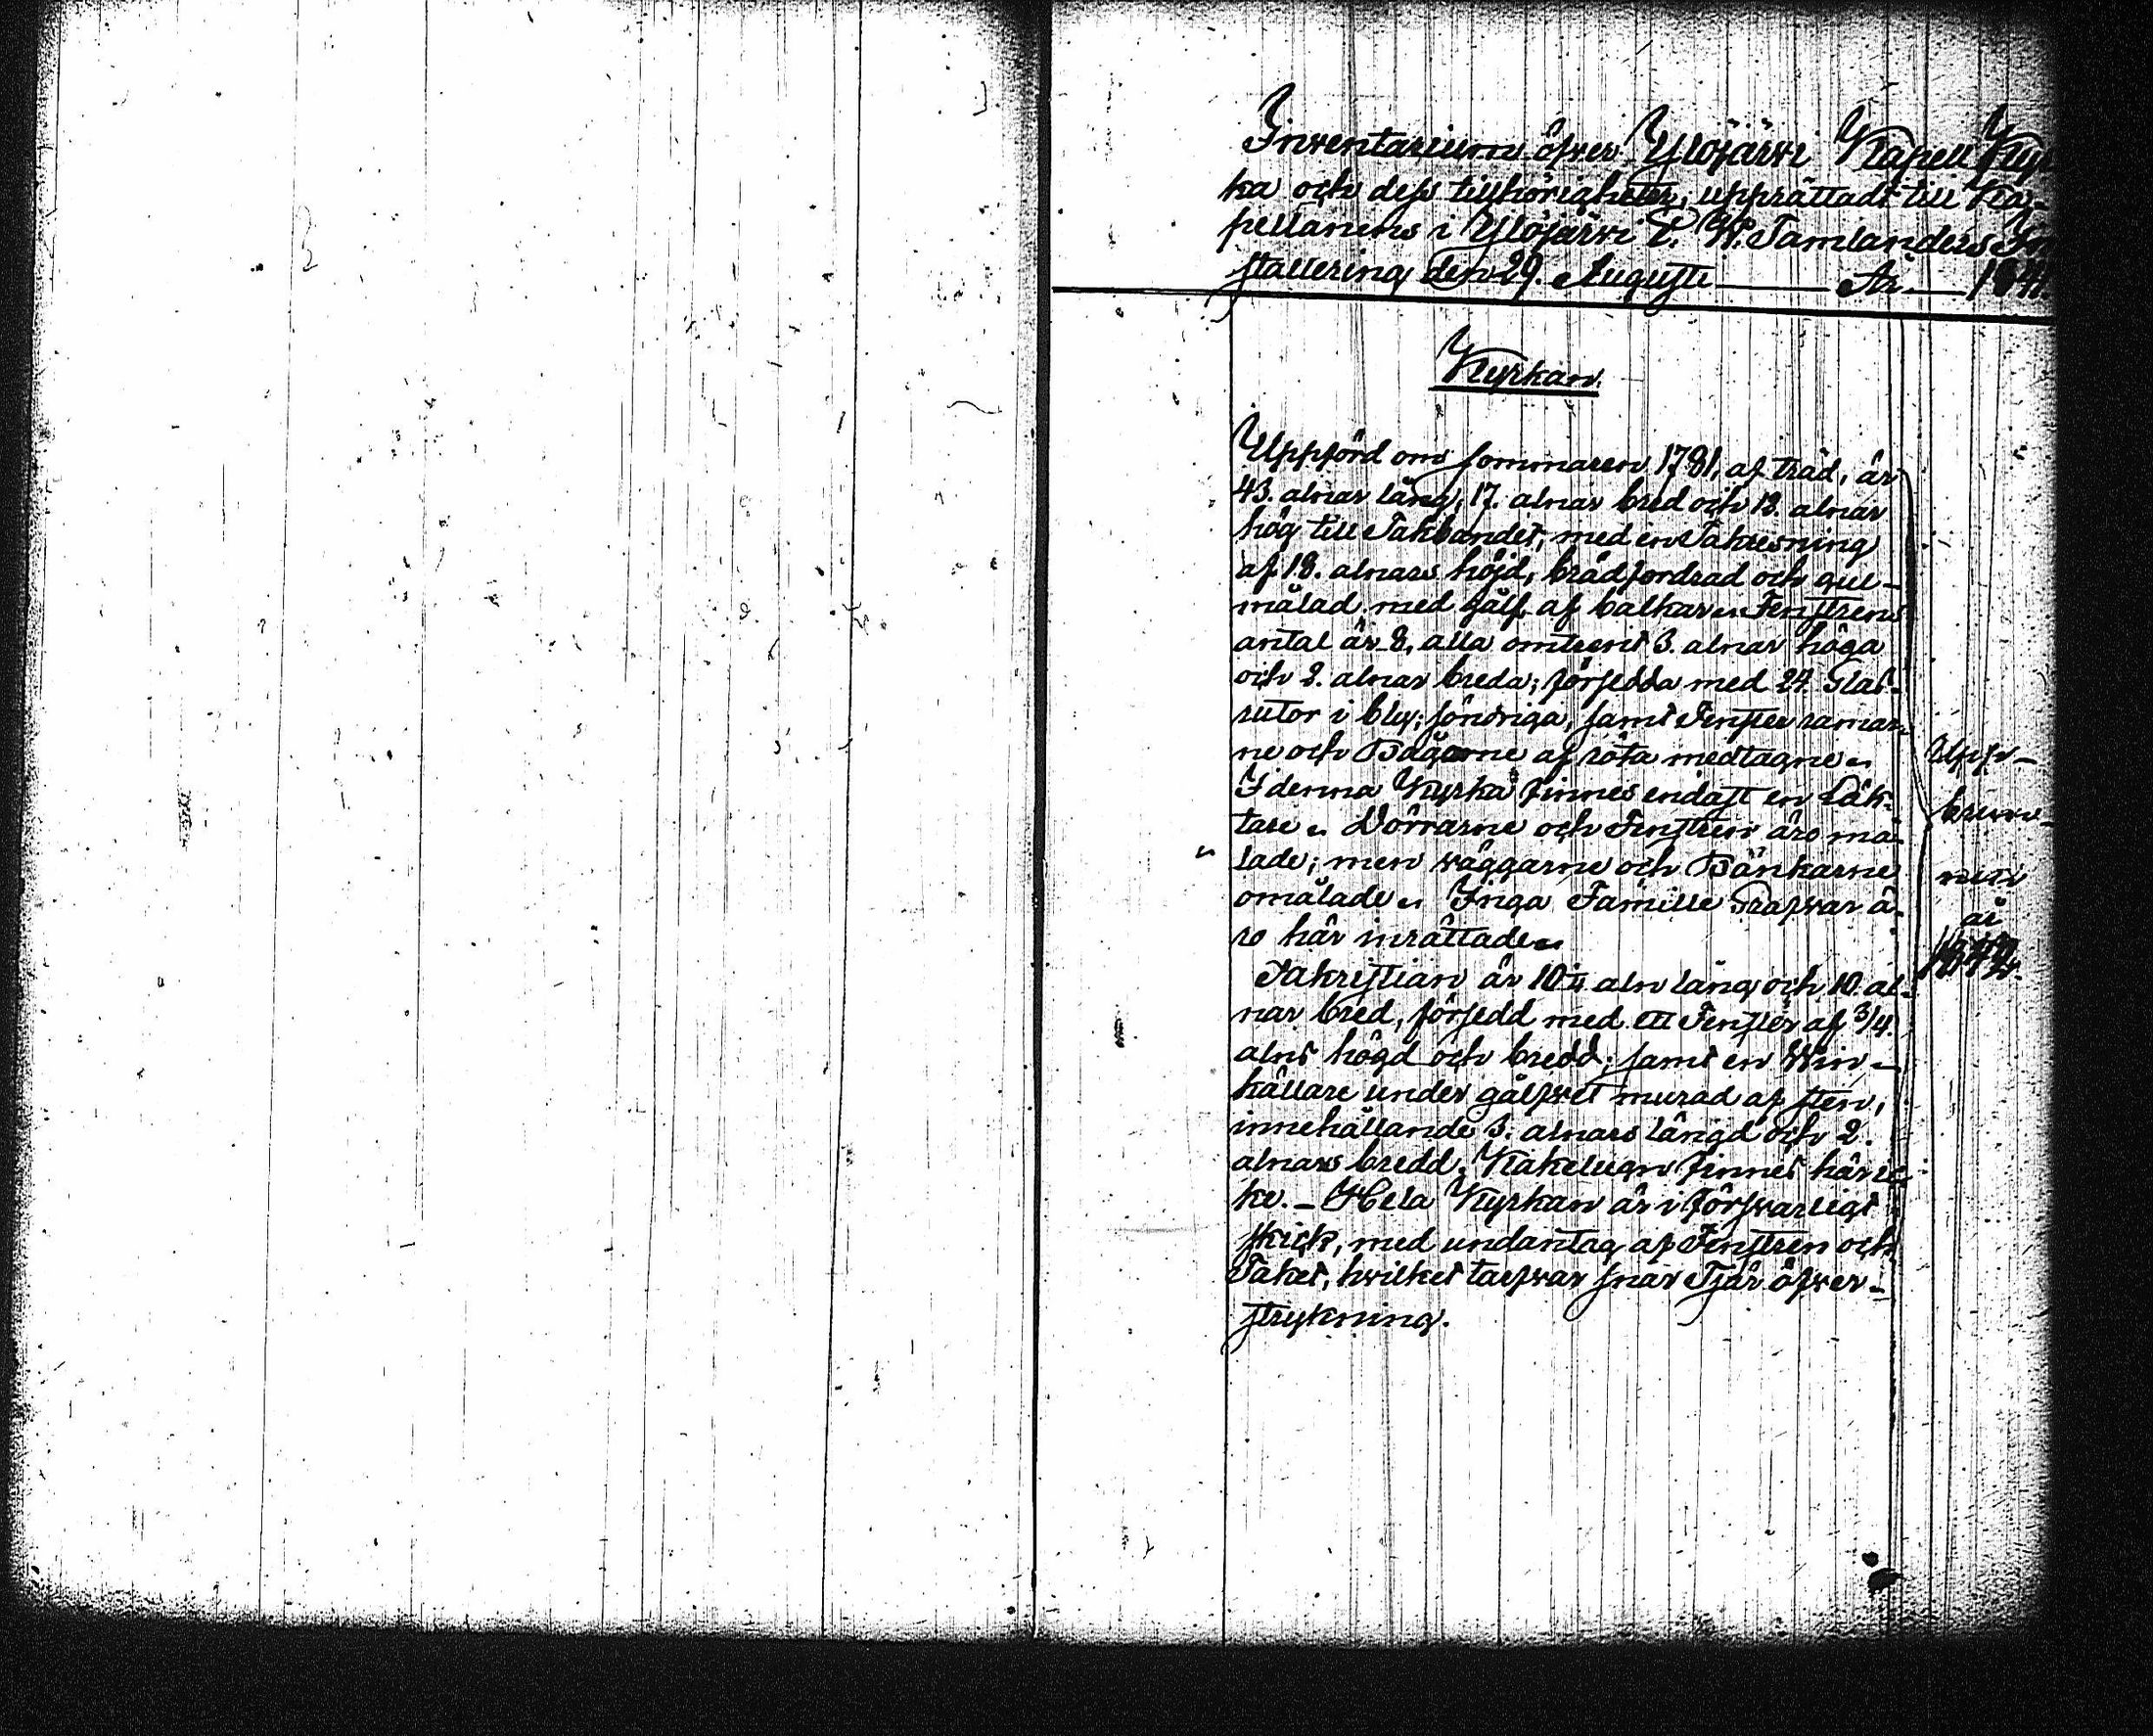 Inventarium öfver Ylöjärvi Kapell Kyr
ka och dess tillhörigheter, upprättadt till Ka-
pellanens i Ylöjärvi E. W. Tamlanders In
stallering den 29. Augusti Ar 1841.
Kyrkan.
Uppförd om sommaren 1781, af träd, är
43. alnar lång, 17. alnar bred och 13. alnar
hög till Takbandet, med en Takresning
af 18. alnars höjd, brädfordrad och gul-
målad med gålf af balkar. Fenstrens
antal är 8, alla omtrent 3. alnar höga
och 2. alnar breda; försedda med 24. Glas-
rutor i bly; söndriga, samt Fenster ramar-
ne och Bågarne af röta medtagne.
I denna Kyrka finnes endast en Läk-
tare. Dörrarne och Fenstren äro må-
lade; men väggarne och Bänkarne
omålade. Inga Familie Grafvar ä-
ro här inrättade.
Sakristian är 10 aln lång och 10. al-
nar bred, försedd med Fenster af 3/4.
alns högd och bredd; samt en Win-
källare under gålfvet murad af sten,
innehållande 3. alnars längd och 2.
alnars bredd. Kakelugn finnes här ic-
ke. - Hela Kyrkan är i försvarligt
skick, med undantag af Fenstren och
Taket, hvilket tarfvar snar Tjär öfver-
strykning.
Uppr-
brunn-
nen
år
1842.